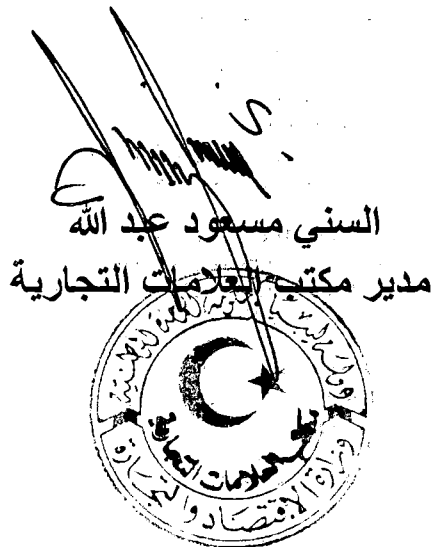 السني مسعود عبد الله
مدير مكتب العلامات التجارية
دولة ليبيا حكومة الوحدة الوطنية
مكتب العلامات التجارية
وزارة الاقتصاد والتجارة